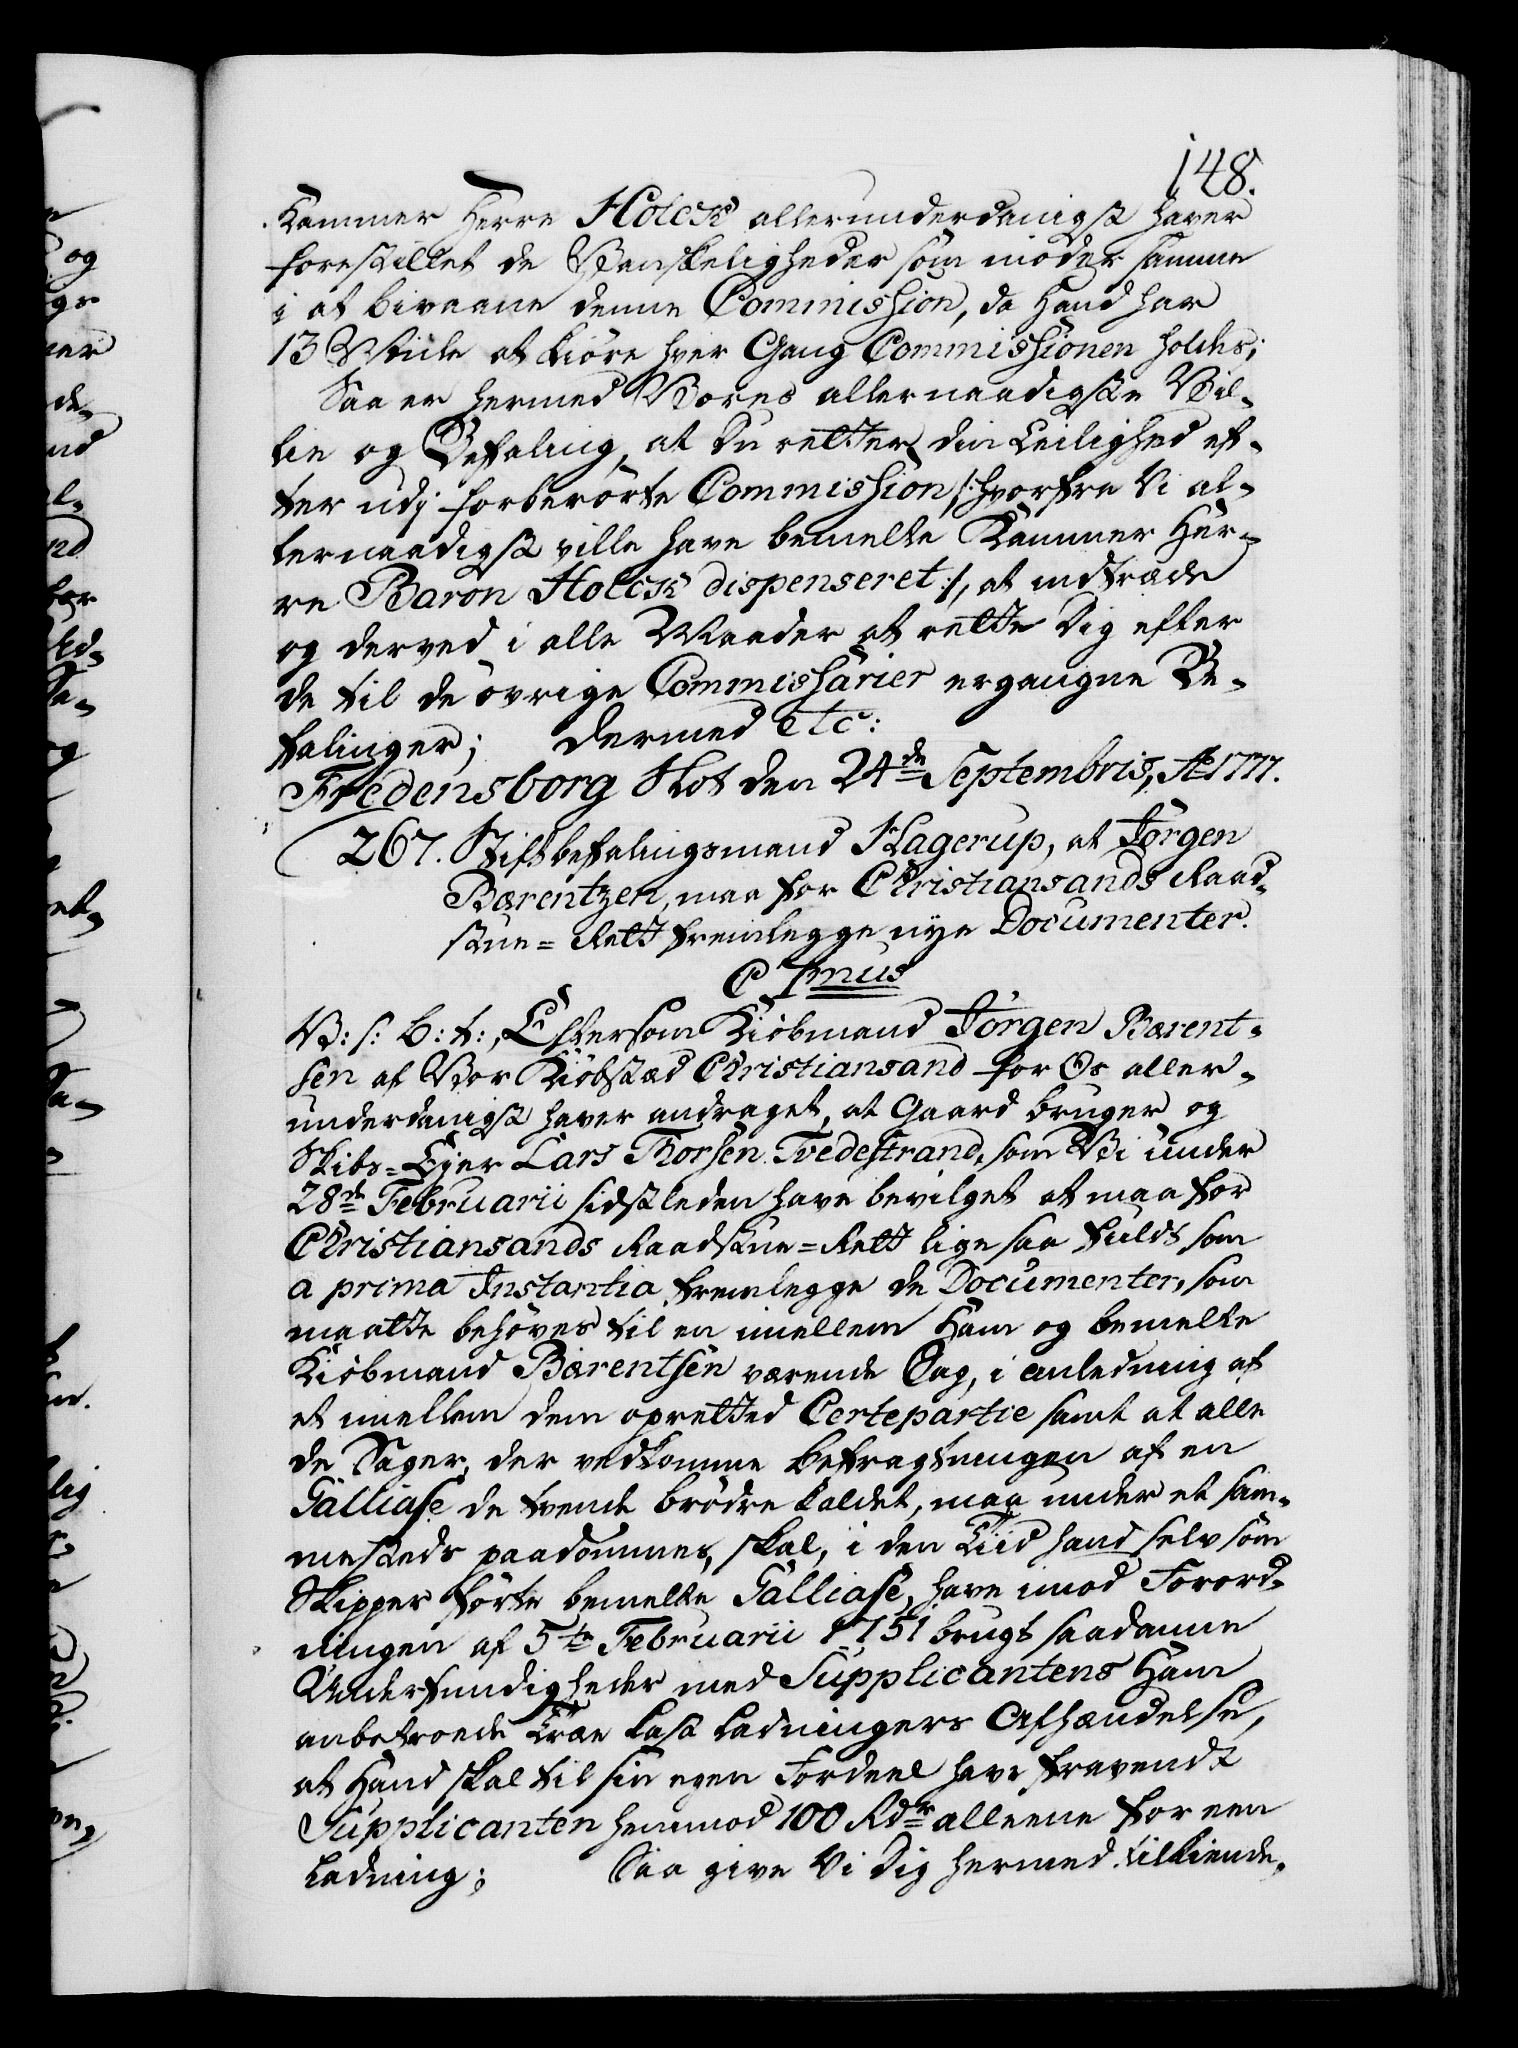 148.
Kammer Herre Holck allerunderdanigst haver
forestillet de Vanskeligheder som möder samme
i at bivaane denne Commission, da Hand har
13 Miile at kiöre hver Gang Commissionen holdes;
Saa er hermed Vores allernaadigste Vil-
lie og Befaling, at du retter din Leilighed ef-
ter udj forberörte Commission /: hvorfra Vi al-
lernaadigst ville have bemelte Kammer Her-
re Baron Holck dispenseret :/, at indtræde
og derved i alle Maader at rette Dig efter
de til de övrige Commissarier ergangne Be-
falinger; Dermed etc:
Fredensborg Slot den 24de Septembris, Ao 1777.
267. Stiftbefalingsmand Hagerup, at Jörgen
Bærentzen, maa for Christiansands Raad-
stue=Rett fremlegge nye Documenter.
C 7mus
V: s: b: t:, Eftersom Kiöbmand Jörgen Bærent-
sen af Vor Kiöbstæd Christiansand for Os aller-
underdanigst haver andraget, at Gaard bruger og
Skibs=Ejer Lars Thorsen Tvedestrand, som Vi under
28de Februarii sidstleden have bevilget at maa for
Christiansands Raadstue=Rett lige saa fuldt som
a prima Instantia fremlegge de Documenter, som
maatte behöves til en imellem Ham og bemelte
Kiöbmand Bærentsen værende Sag, i anledning af
et imellem dem oprettet Certepartie samt at alle
de Sager, der vedkomme befragtningen af en
Galliase de tvende brödre kaldet, maa under et sam-
mesteds paadömmes, skal, i den Tiid hand selv som
Skipper förte bemelte Galliase, have imod Forord-
ningen af 5te Februarii 1751 brugt saadanne
Underfundigheder med Supplicantens Ham
anbetroede Træe Last Ladningers Afhændelse,
at Hand skal til sin egen Fordeel have fravendt
Supplicanten henimod 100 Rdr alleene for een
Ladning; Saa give Vi Dig hermed tilkiende,